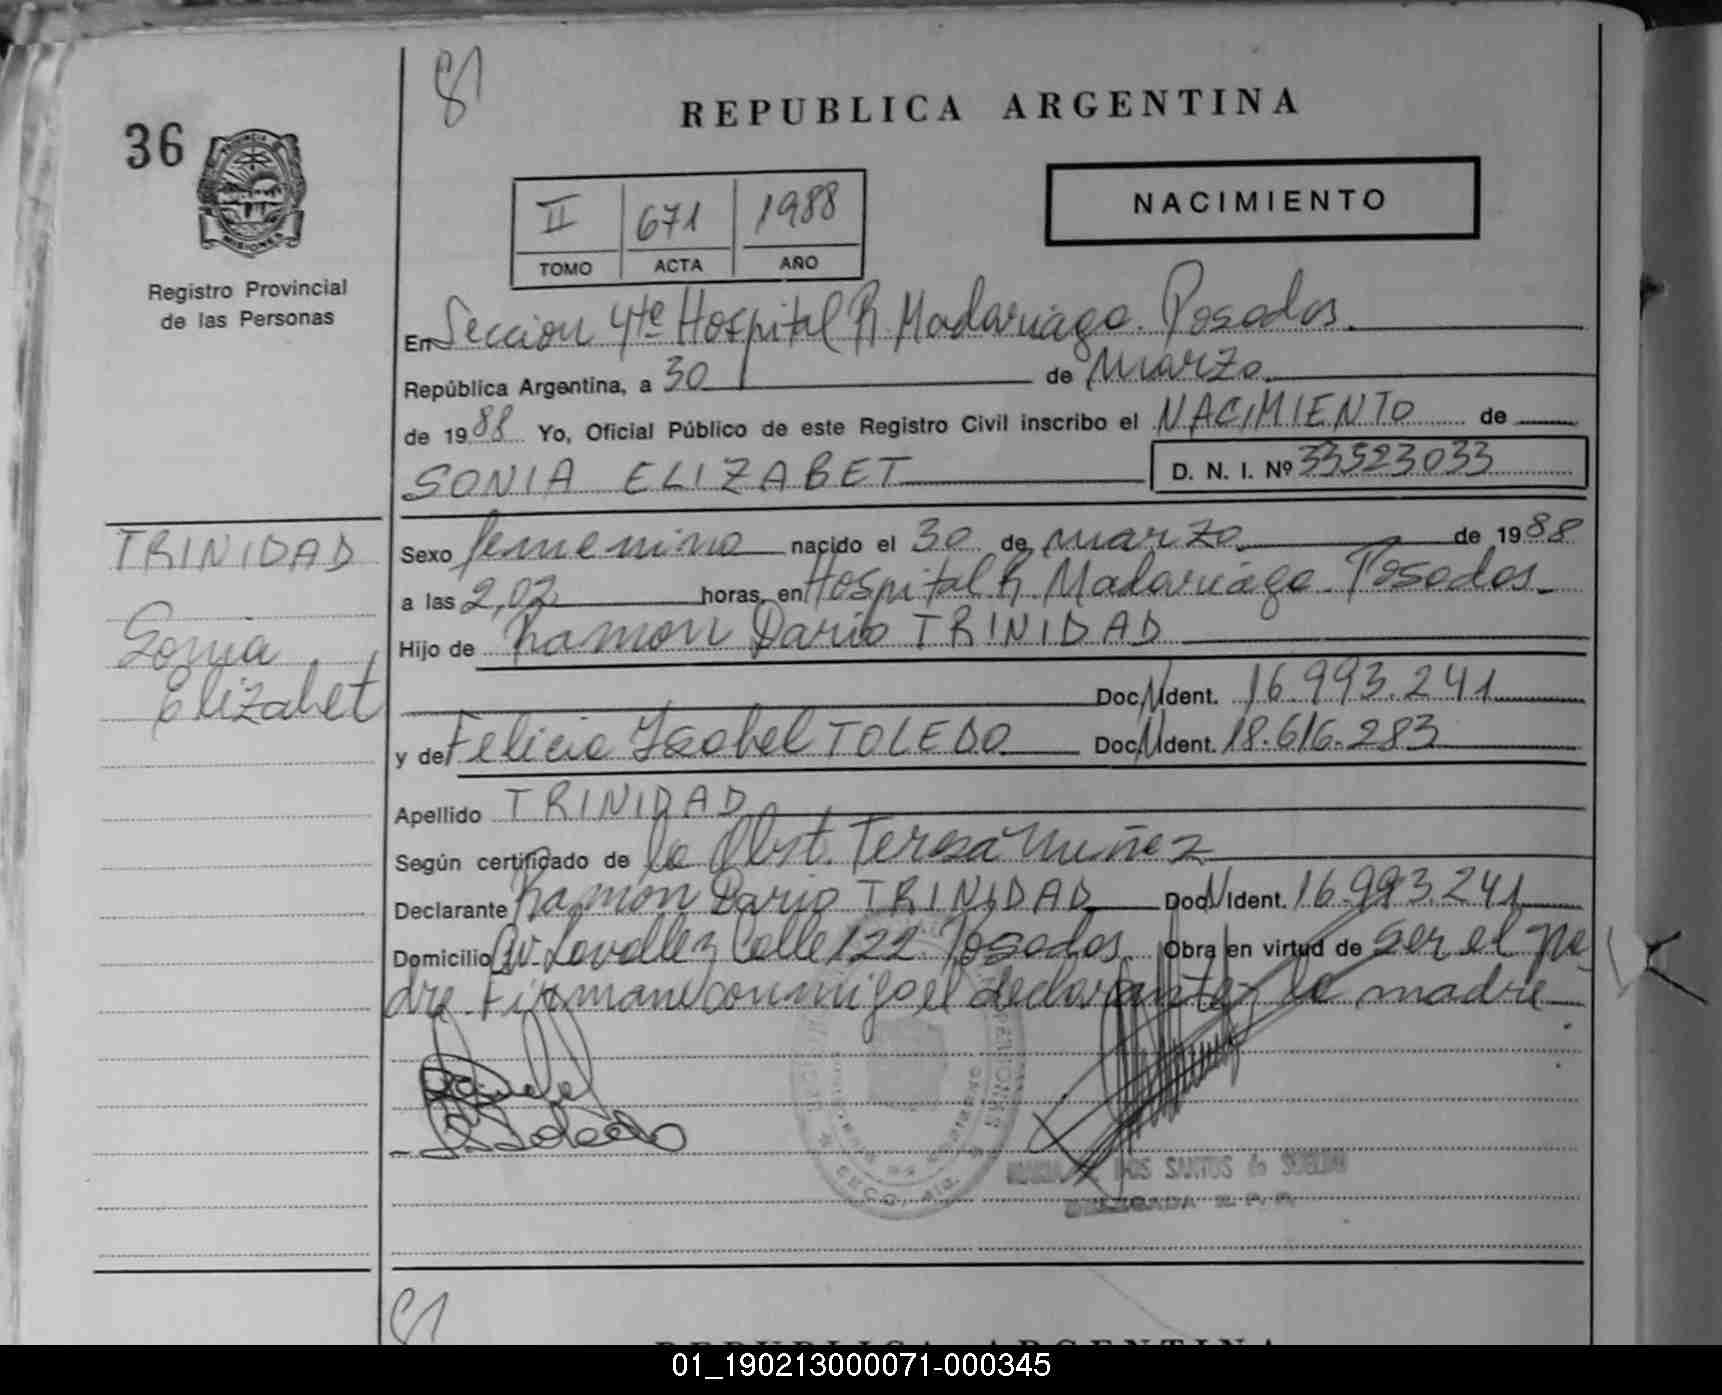 81
REPUBLICA ARGENTINA
36
NACIMIENTO
II 671 1988
TOMO ACTA AÑO
PROVINCIA
MISIONES
Registro Provincial
de las Personas
En Seccion 4te Hospital R Madariaga. Posadas.
República Argentina, a 30 de Marzo
de 1988 Yo, Oficial Público de este Registro Civil inscribo el NACIMIENTO de
SONIA ELIZABET D. N. I. Nº 33523033
TRINIDAD
Sonia
Elizabet
Sexo femenino nacido el 30 de marzo de 1988
a las 2,02 horas, en Hospital R Madariaga. Posadas
Hijo de Ramon Dario TRINIDAD
Doc N Ident. 16.993.241
y de Felicia Isabel TOLEDO Doc. N Ident. 18.616.283
Apellido TRINIDAD
Según certificado de la Obst. Teresa Nuñez
Declarante Ramon Dario TRINIDAD Doc N Ident. 16.993.241
Domicilio Av. Lavalle y Calle 122. Posadas. Obra en virtud de ser el pa
dre. Firman conmigo el declarante y la madre
Toledo
DOS SANTOS de
DELEGADA R. P. P.
81
REPUBLICA ARGENTINA
01_190213000071-000345